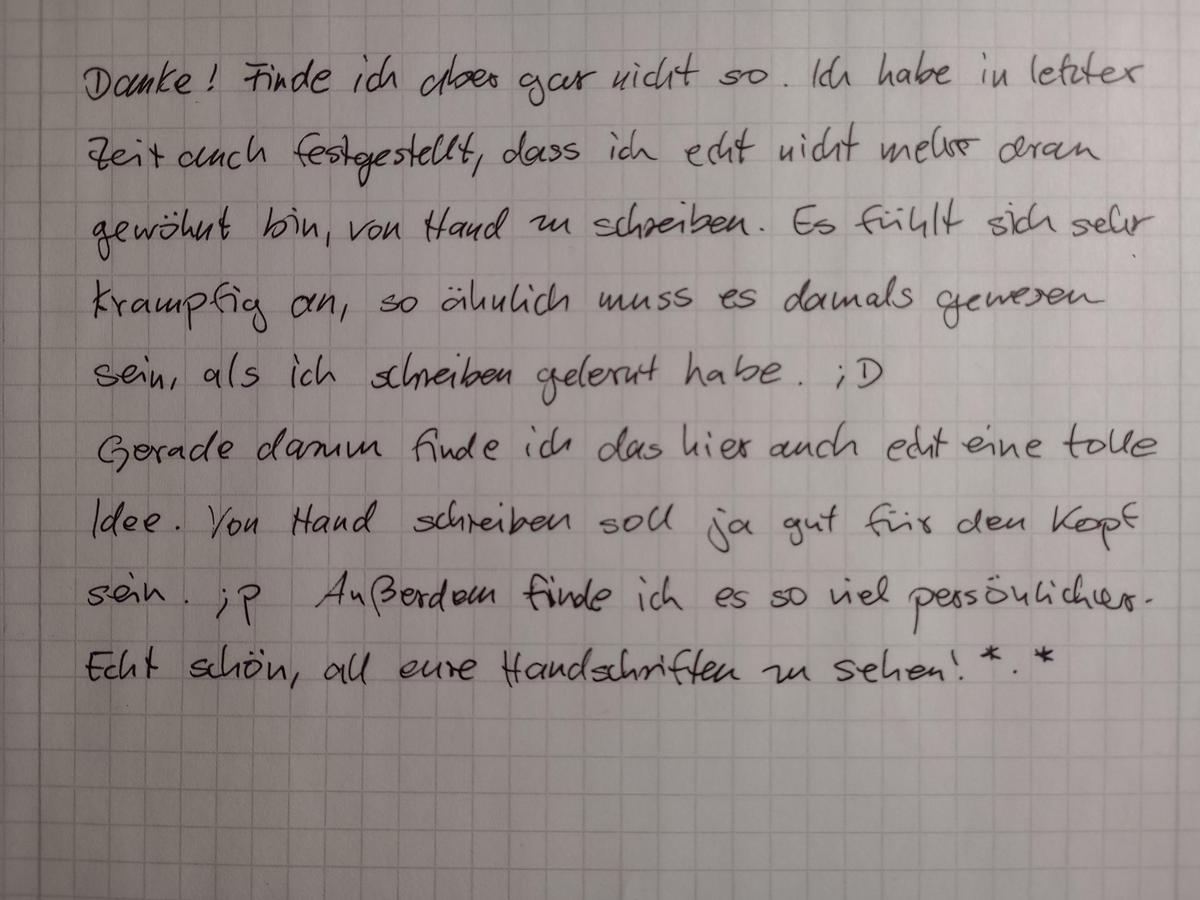 Danke! Finde ich aber gar nicht so. Ich habe in letzter
Zeit auch festgestellt, dass ich echt nicht mehr daran
gewöhnt bin, von Hand zu schreiben. Es fühlt sich sehr
krampfig an, so ähnlich muss es damals gewesen
sein, als ich schreiben gelernt habe. ;D
Gerade darum finde ich das hier auch echt eine tolle
Idee. Von Hand schreiben soll ja gut für den Kopf
sein. ;P Außerdem finde ich es so viel persönlicher.
Echt schön, all eure Handschriften zu sehen! *.*